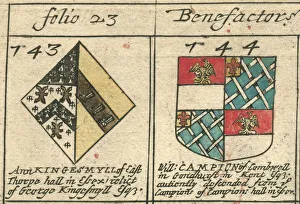 folio 23
Benefactors
743
744
Ann KINGESMYLL of East
Thorpe hall in Essex relict
of George Kingsmyll Esqr.
Will: CAMPION of Combwell
in Goudhurst in Kent Esqr.
antiently descended from ye
Campions of Campions hall in Essex